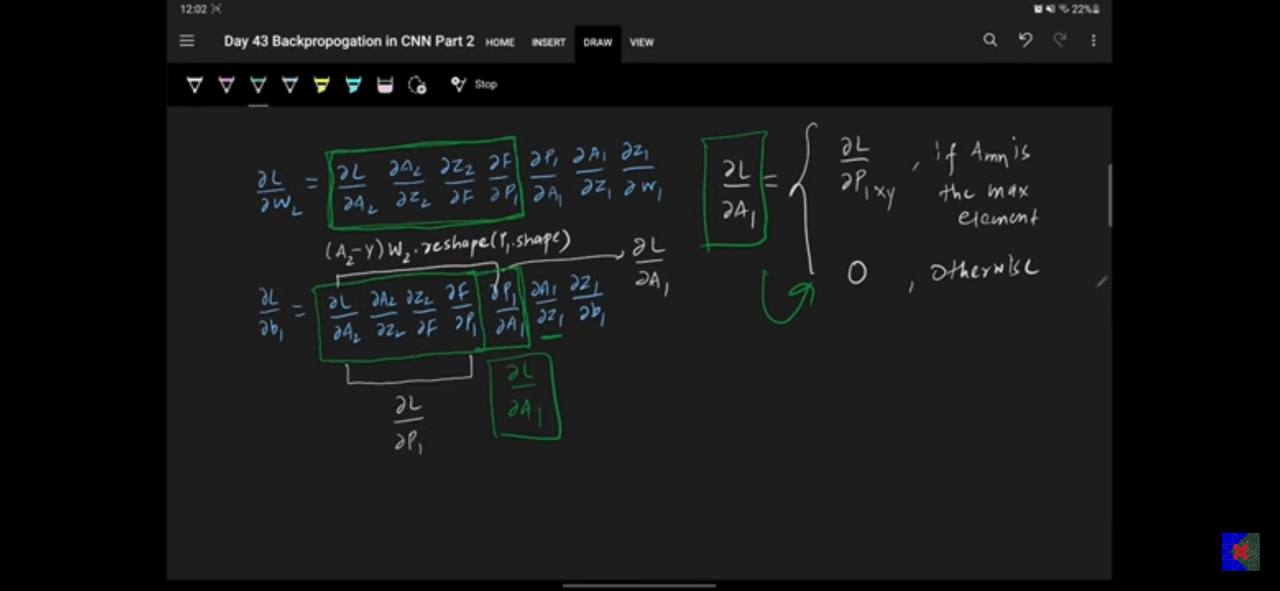 12:02
22%
Day 43 Backpropogation in CNN Part 2 HOME INSERT DRAW VIEW
Stop
∂L/∂W₂ = ∂L/∂A₂ ∂A₂/∂Z₂ ∂Z₂/∂F ∂F/∂P₁ ∂P₁/∂A₁ ∂A₁/∂Z₁ ∂Z₁/∂W₁
(A₂-Y)W₂.reshape(P₁.shape)
∂L/∂A₁
∂L/∂b₁ = ∂L/∂A₂ ∂A₂/∂Z₂ ∂Z₂/∂F ∂F/∂P₁ ∂P₁/∂A₁ ∂A₁/∂Z₁ ∂Z₁/∂b₁
∂L/∂P₁
∂L/∂A₁
∂L/∂A₁ = { ∂L/∂P₁xy , if Amn is
the max
element
0 , Otherwise